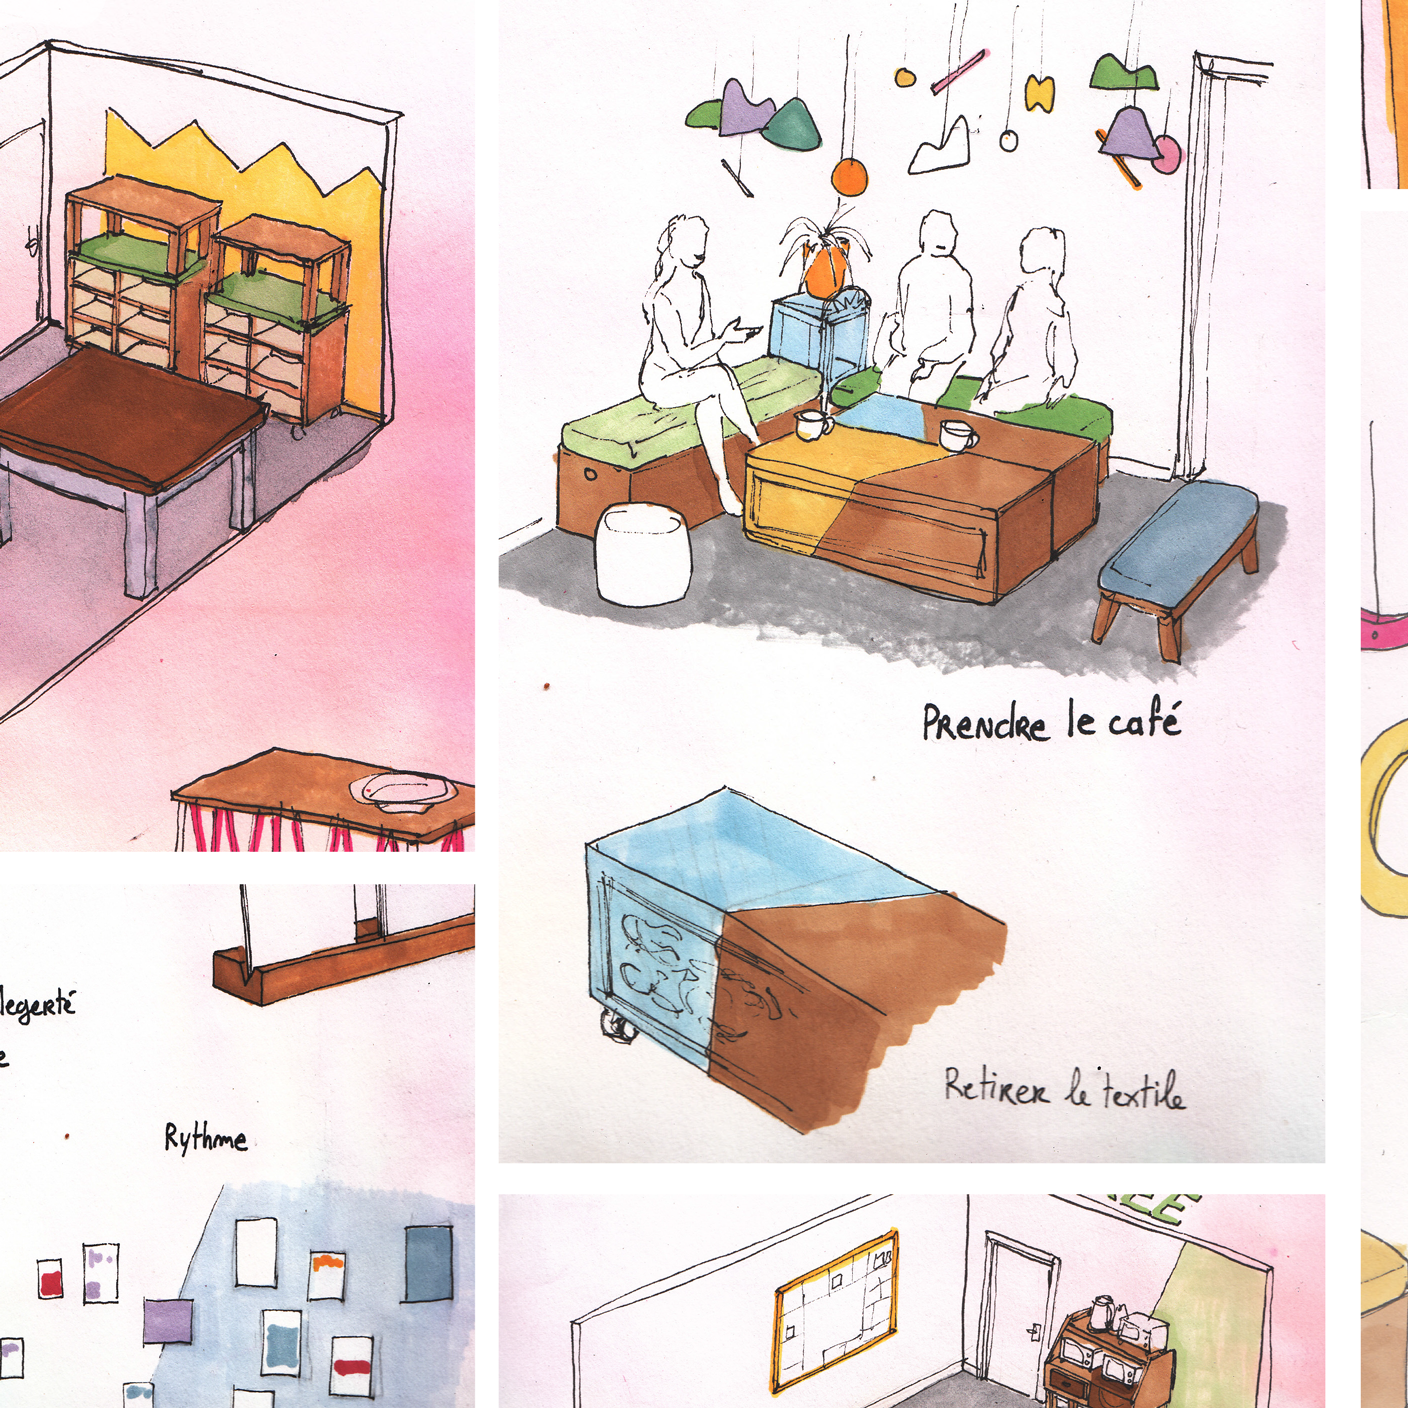 Prendre le café
Retirer le textile
legerté
e
Rythme